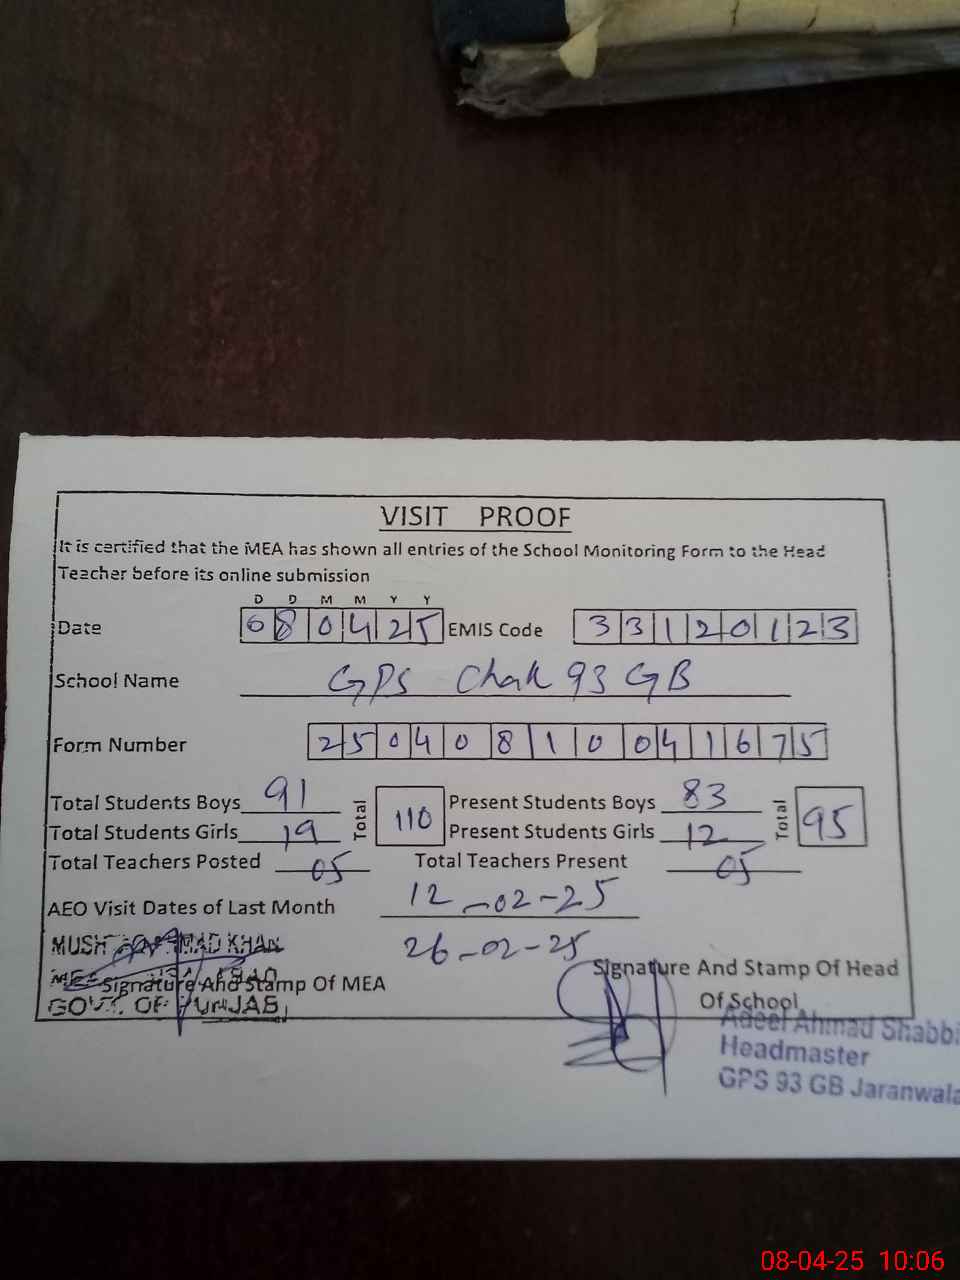 VISIT PROOF
It is certified that the MEA has shown all entries of the School Monitoring Form to the Head
Teacher before its online submission
D D M M Y Y
Date 080425 EMIS Code 33120123
School Name GPS Chak 93 GB
Form Number 25040810041675
Total Students Boys 91 Total 110 Present Students Boys 83 Total 95
Total Students Girls 19 Present Students Girls 12
Total Teachers Posted 05 Total Teachers Present 05
AEO Visit Dates of Last Month 12-02-25
26-02-25
KHAN
MEA
GOVT. OF PUNJAB
Signature And Stamp Of MEA
Signature And Stamp Of Head
Of School
Adeel Ahmad Shabbi
Headmaster
GPS 93 GB Jaranwala
08-04-25 10:06